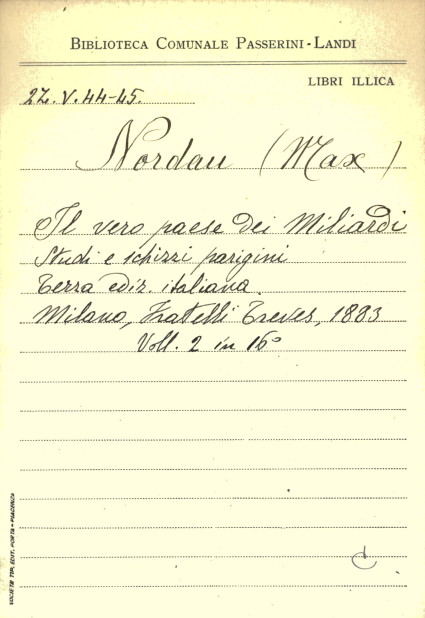 BIBLIOTECA COMUNALE PASSERINI-LANDI
LIBRI ILLICA
2Z. V. 44-45.
Nordau (Max)
Il vero paese dei Miliardi
Studi e schizzi parigini
Terza ediz. italiana.
Milano, Fratelli Treves, 1883
Voll. 2 in 16°
C
SOCIETÀ TIP. EDIT. PORTA - PIACENZA